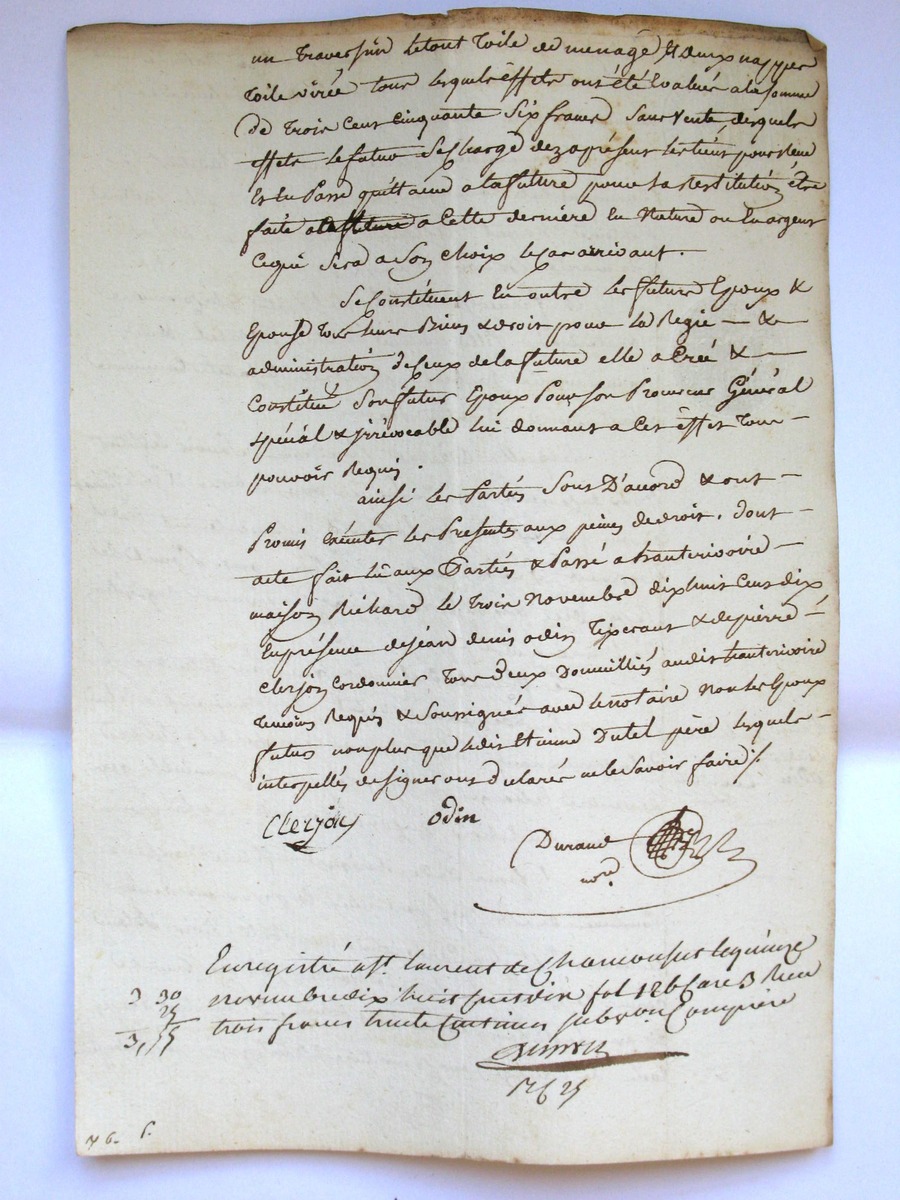 un traversin le tout toile de menage & deux nappes
toile virée tous lesquels éffets ont été Evalués a la somme
de trois Cent Cinquante Six francs sans vente desquels
effets le futur se Charge dez aprésent les tient pour reçu
Et En Passe quittance a la future pour la restitution être
faite a la future a Cette derniére En Nature ou En argent
Ce qui Sera a Son choix le Cas arrivant.
Se Constituent En outre les futurs Epoux &
Epouse tous leurs Biens & droits pour la Regie — &
administration de Ceux de la future elle a Créé &
Constitué Son futur Epoux Pour son Procureur Général
spécial & jrrévocable lui donnant a Cet éffet Tout
pouvoir Requis.
ainsi les Parties Sont D'accord & ont
Promis éxécuter les Presentes aux peines de droit. dont
acte fait lû aux Parties & Passé a hauterivoire
maison Richard le trois Novembre dix huit Cent dix
En présence de jean denis odin Tixerant & de pierre
Clerjon Cordonnier Tous deux Domicilliés audit hauterivoire
temoins Requis & Soussignés avec le notaire Non les Epoux
futurs non plus que ledit Etienne Dutel père lesquels
interpellés de signer ont déclarés ne le Savoir faire ./.
Clerjon odin
Durand
nore.
Enregistré a St. laurent de Chamousset le quinze
novembre dix huit cent dix fol 126 Care 3 Reçu
trois francs trente Centimes subvon. Comprise
3 30
25
3,55
126 25